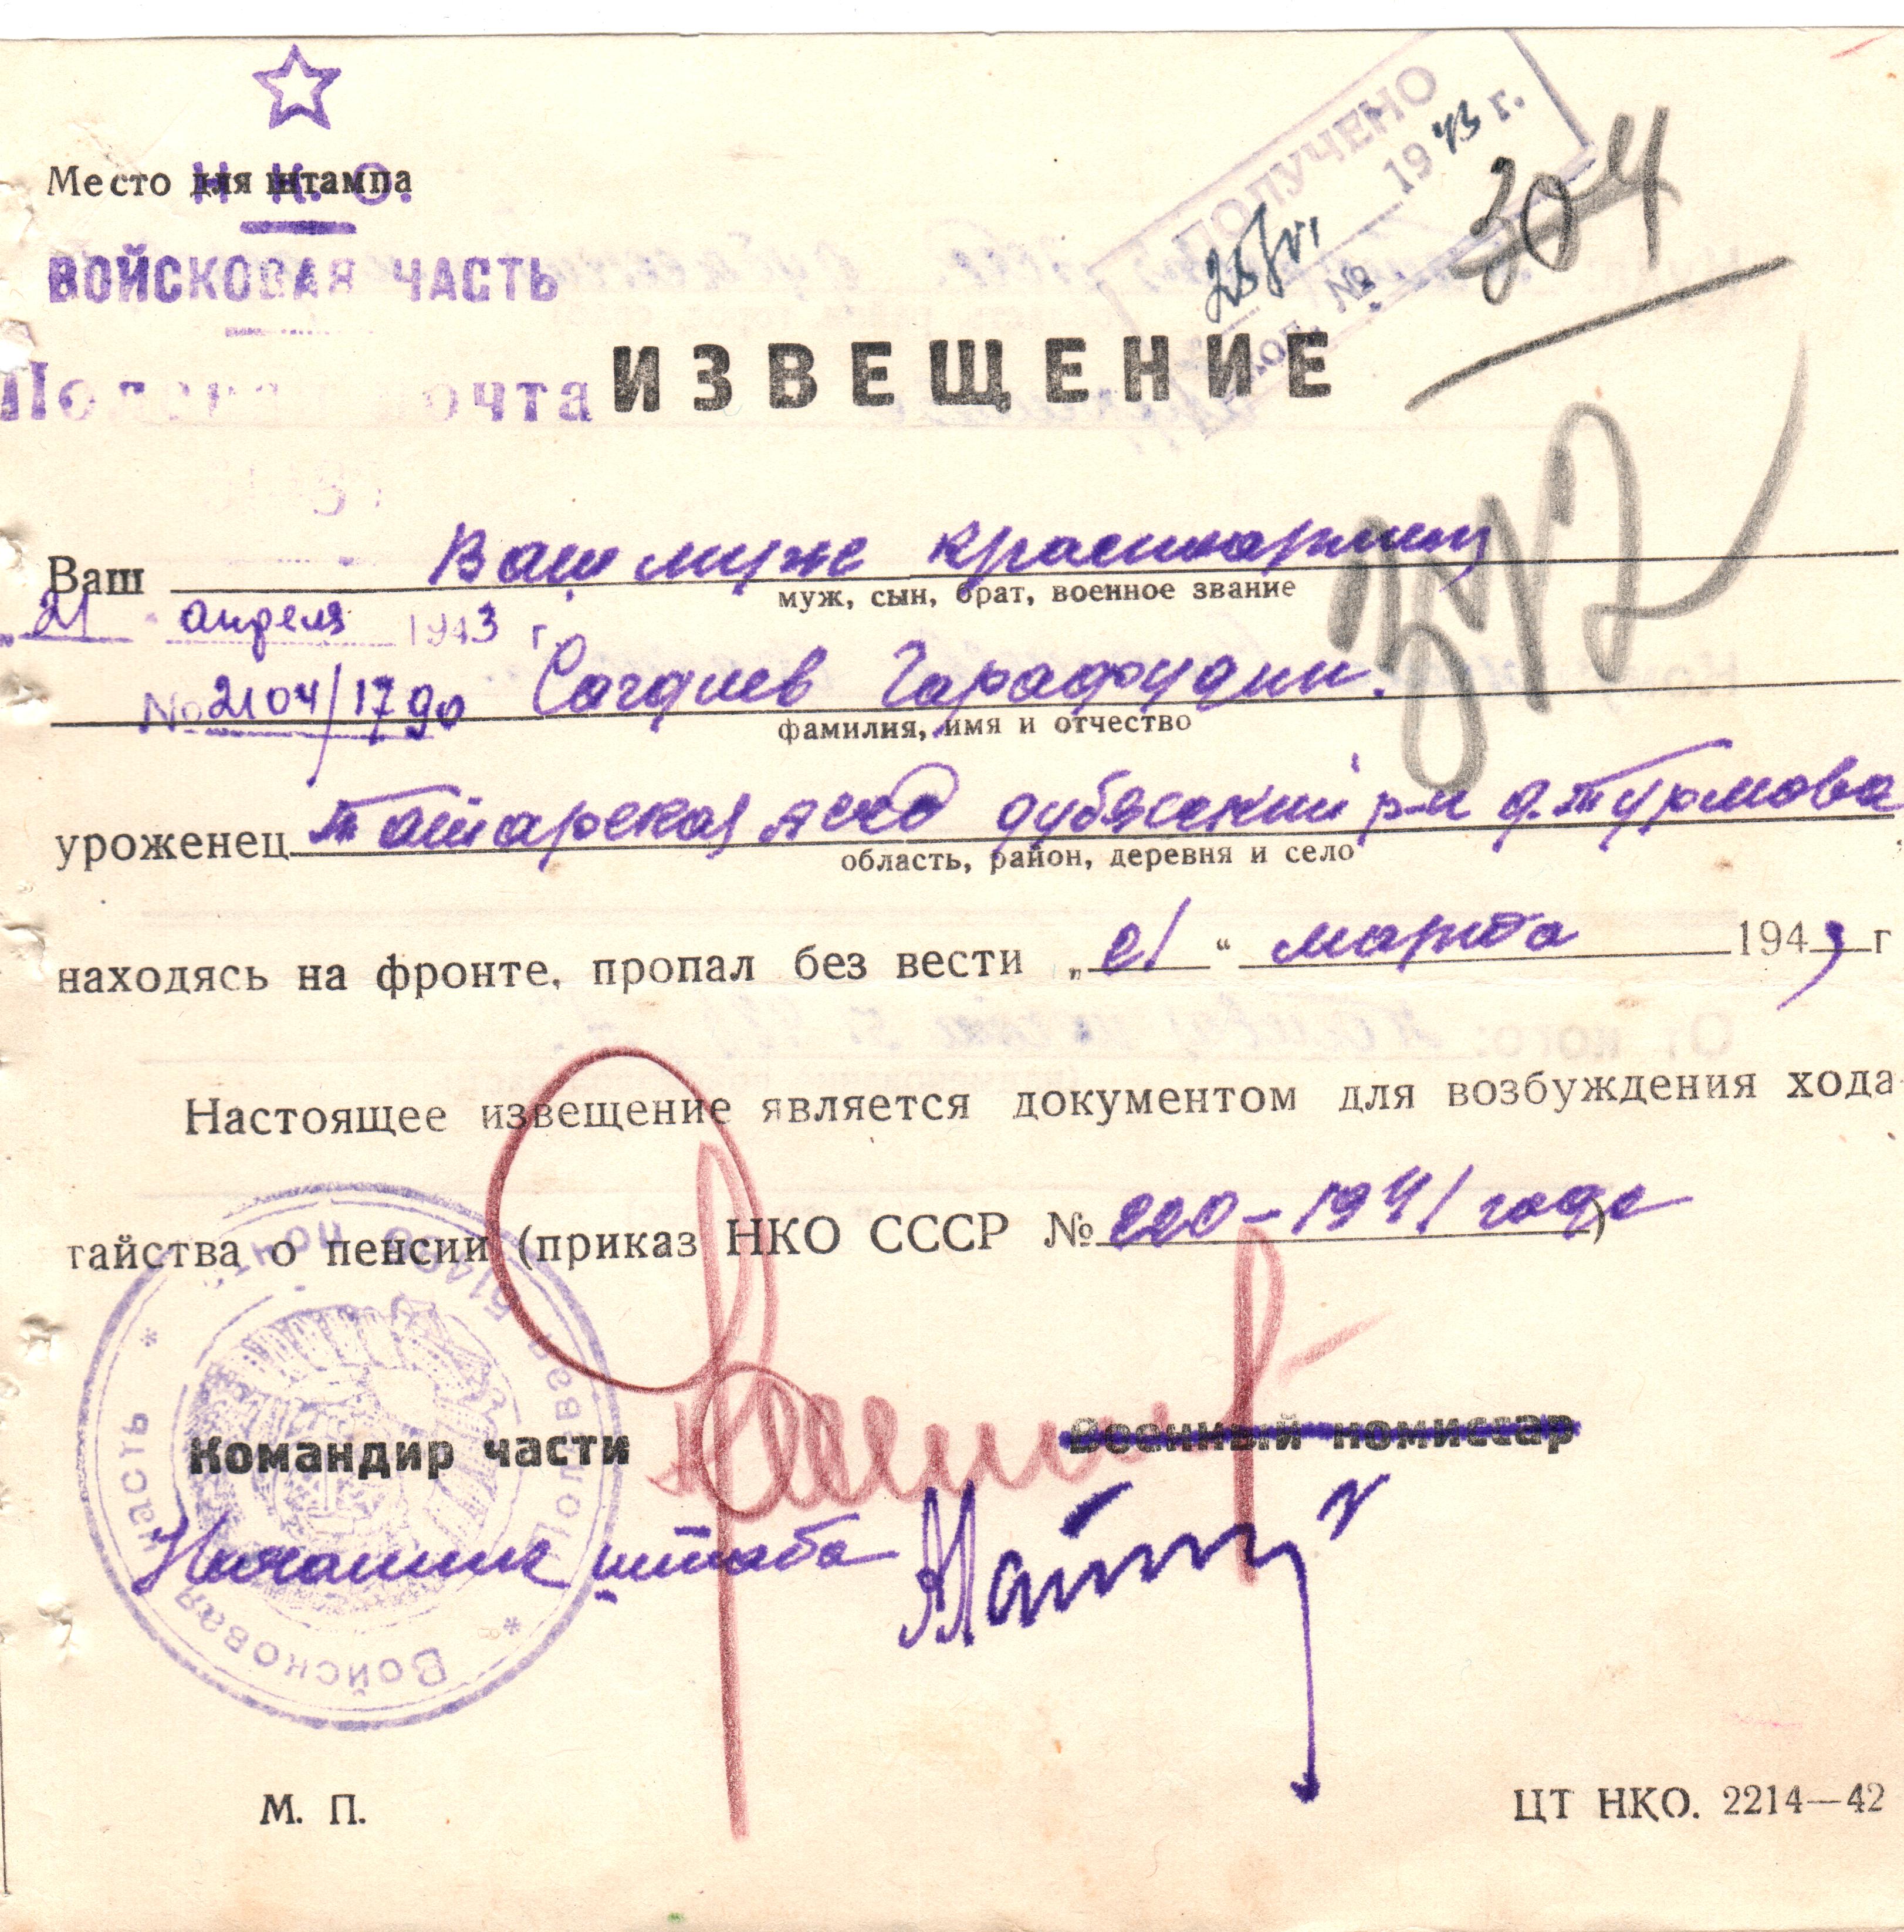 Место для штампа
Н К. О.
ВОЙСКОВАЯ ЧАСТЬ
Полевая почта
ПОЛУЧЕНО
1943 г.
№
304
ИЗВЕЩЕНИЕ
342
Ваш Ваш муж красноармеец
муж, сын, брат, военное звание
„21 " апреля 1943 г.
№ 2104/1790 Сагдиев Гарафудин.
фамилия, имя и отчество
уроженец Татарская АССР дубъяский р-н д. Турмова
область, район, деревня и село
находясь на фронте, пропал без вести „21“ марта 1943 г
Настоящее извещение является документом для возбуждения хода-
тайства о пенсии (приказ НКО СССР № 220-1941 года)
Командир части Военный комиссар
Начальник штаба
Войсковая часть * Полевая почта
М. П.
ЦТ НКО. 2214—42